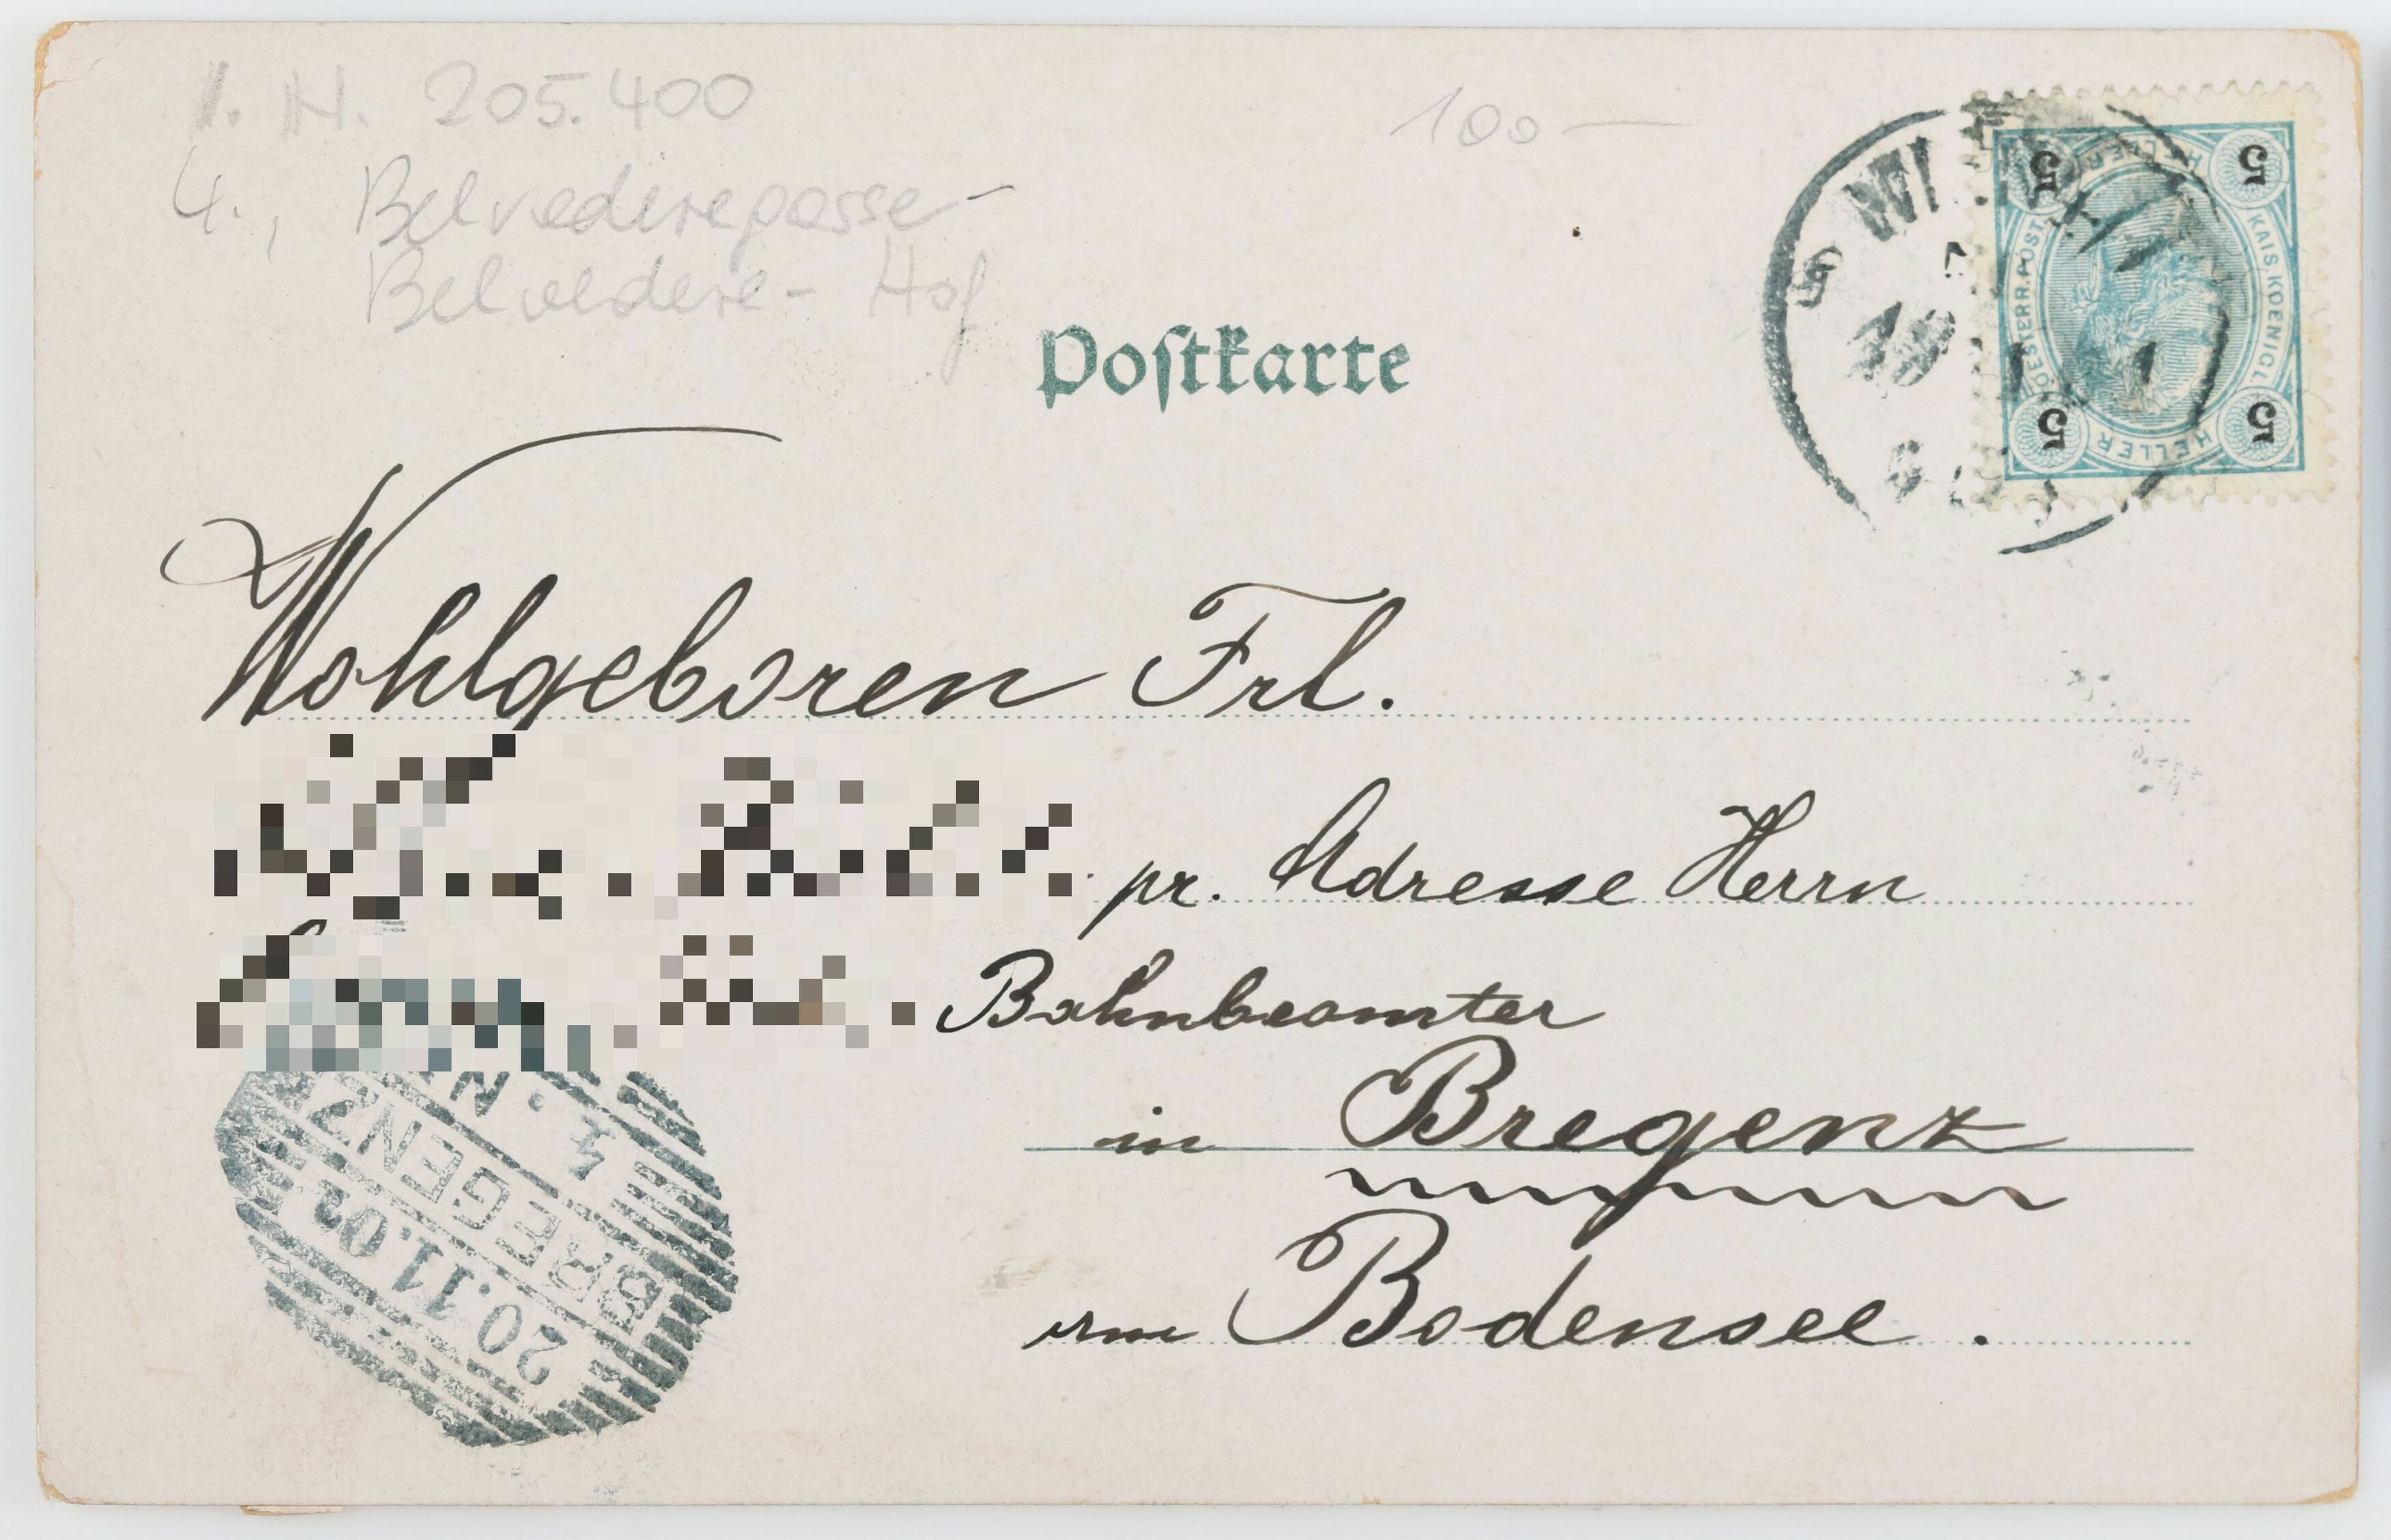 I. N. 205.400
4., Belvederegasse-
Belvedere-Hof
100 —
WI
5
5
5
5
HELLER
KAIS. KOENIGL.
OESTERR. POST
HELLER
Postkarte
Wohlgeboren Frl.
pr. Adresse Herrn
Bahnbeamter
in Bregenz
am Bodensee.
BREGENZ
20.11.02